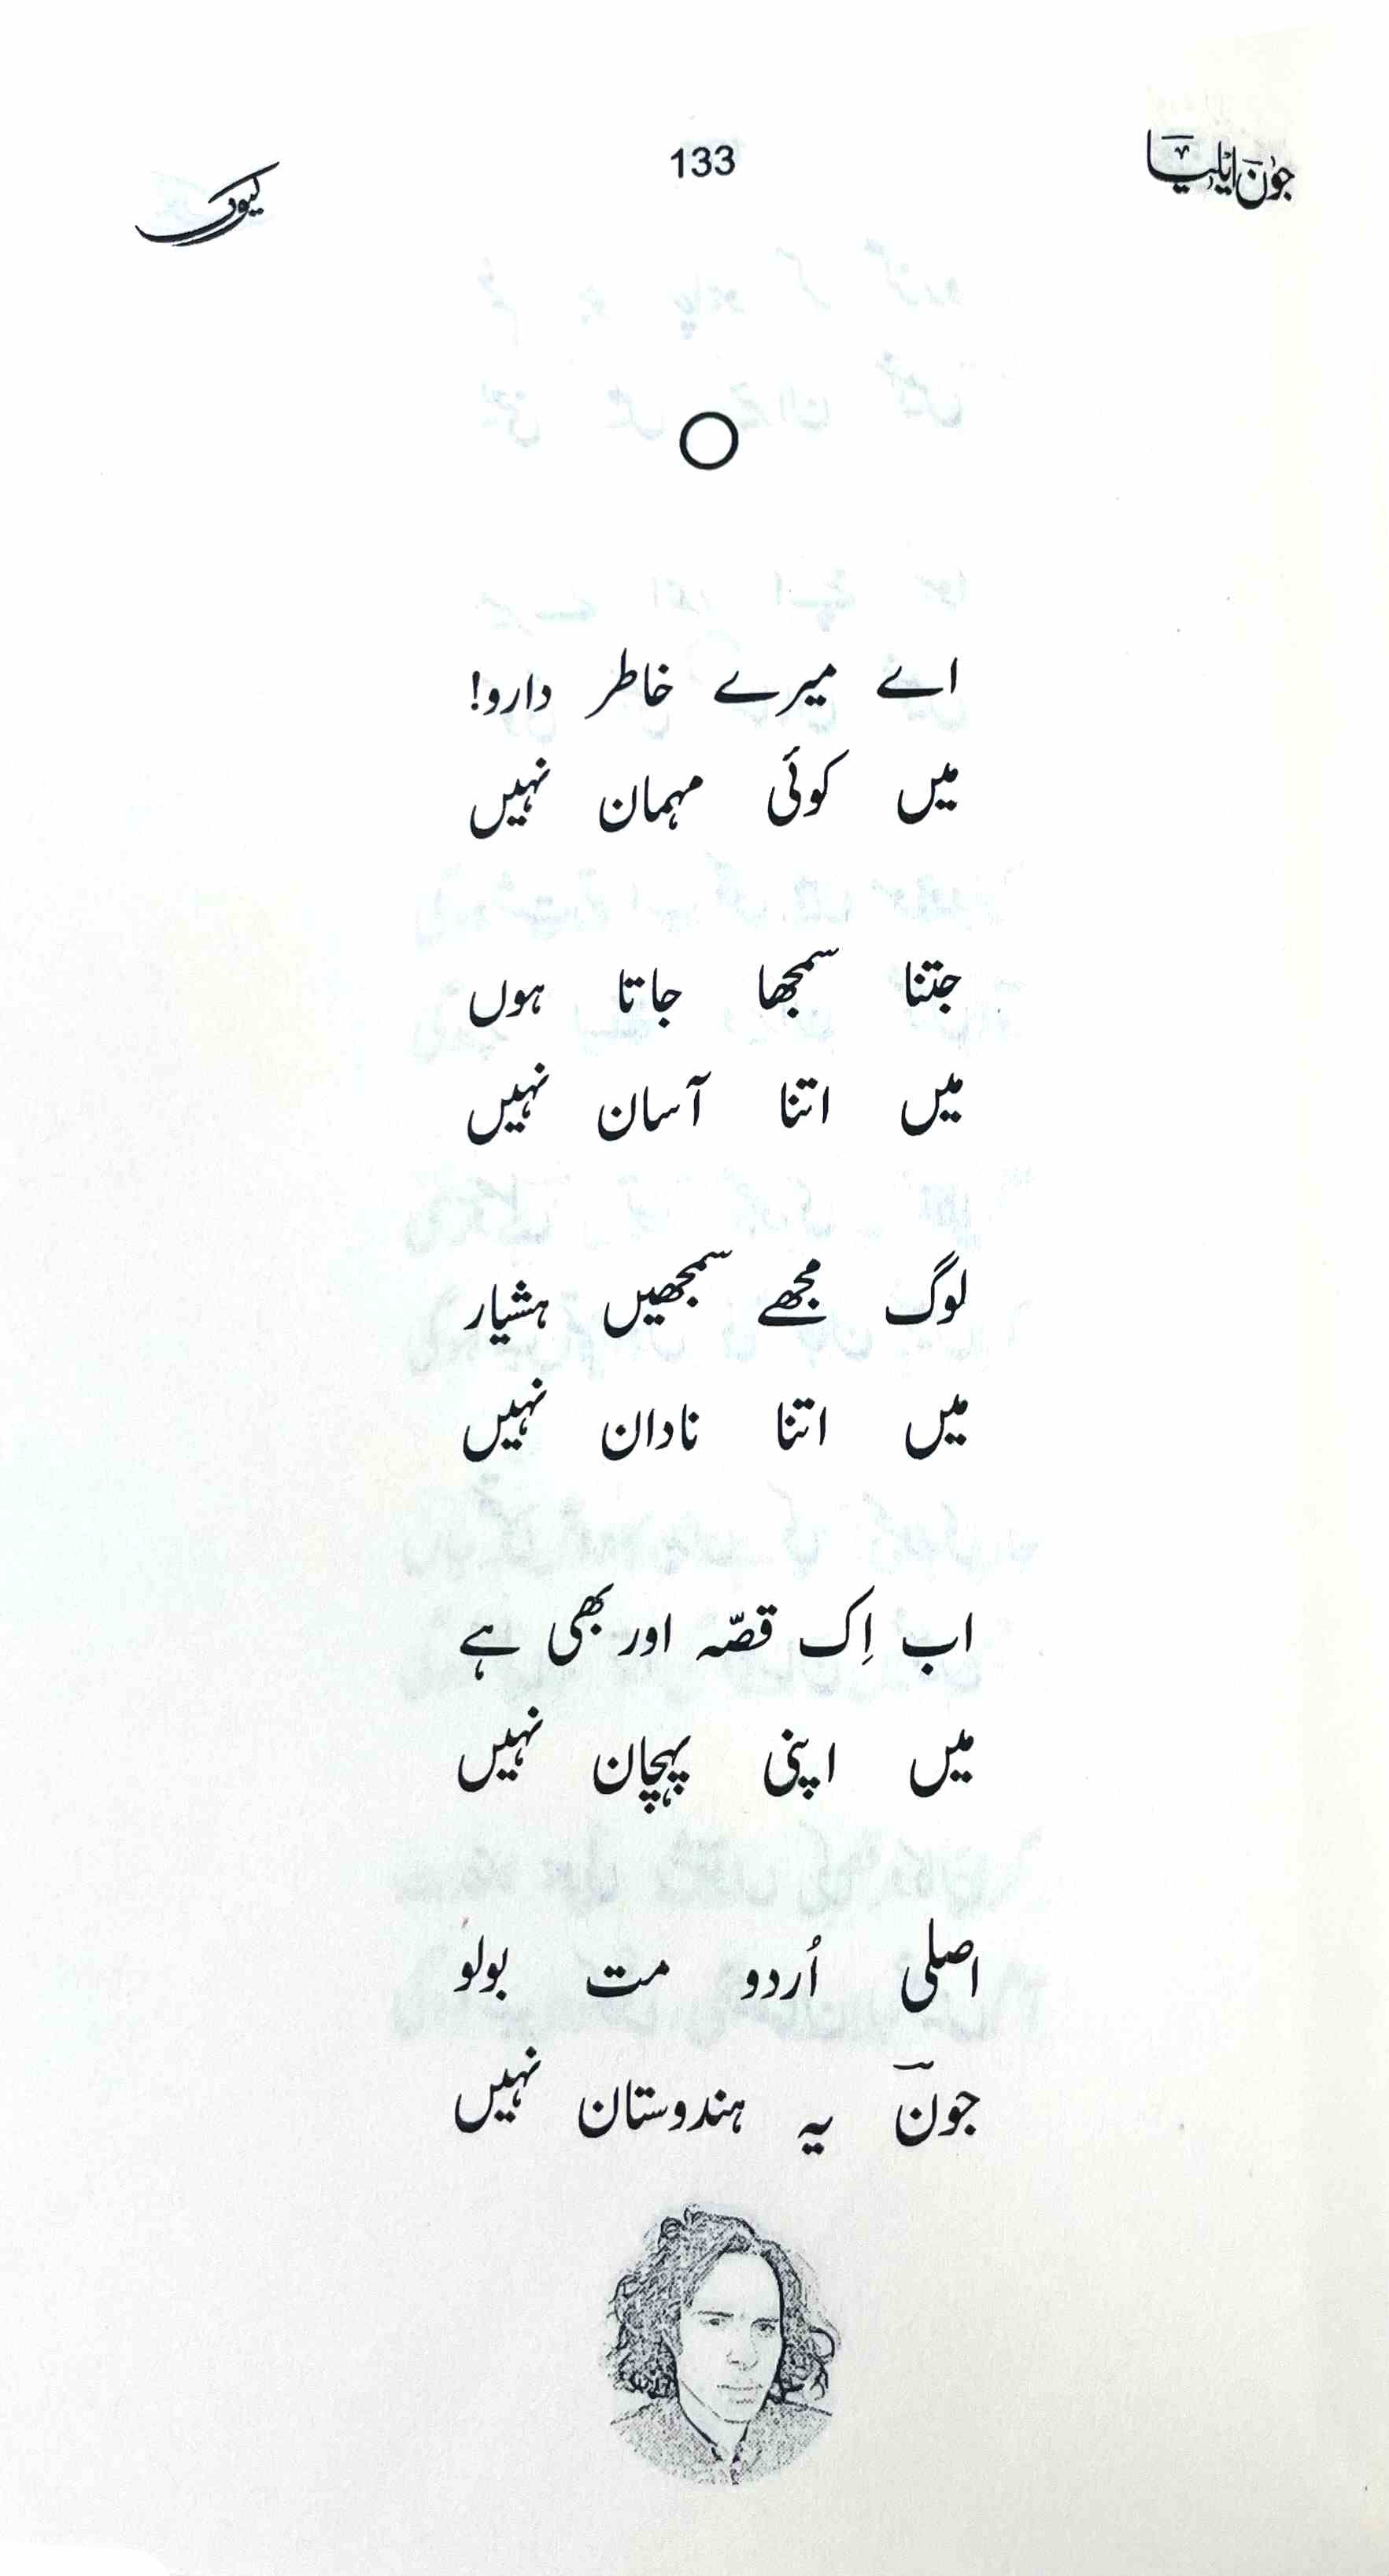 جونؔ ایلیا
133
کیوں
اے میرے خاطر دارو!
میں کوئی مہمان نہیں
جتنا سمجھا جاتا ہوں
میں اتنا آسان نہیں
لوگ مجھے سمجھیں ہشیار
میں اتنا نادان نہیں
اب اِک قصّہ اور بھی ہے
میں اپنی پہچان نہیں
اصلی اُردو مت بولو
جونؔ یہ ہندوستان نہیں